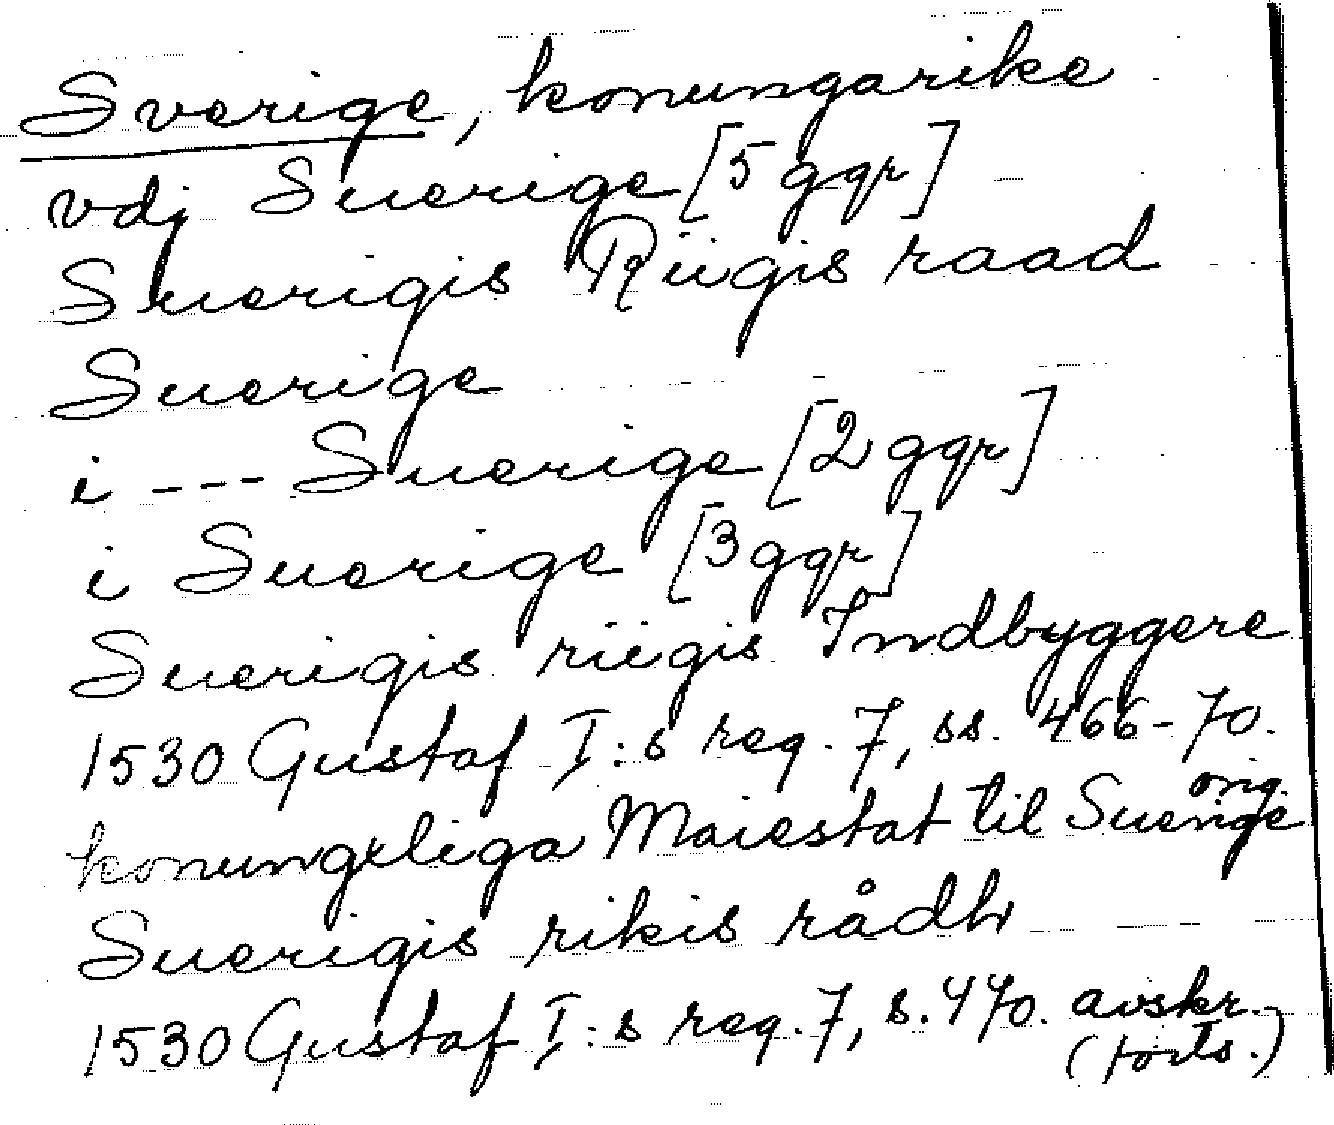 Sverige, konungarike
vdj Suerige [5 ggr]
Suerigis Riigis raad
Suerige
i --- Suerige [2 ggr]
i Suerige [3 ggr]
Suerigis riigis Indbyggere
1530 Gustaf I:s reg. 7, ss. 466-70.
orig.
konungeliga Maiestat til Suerige
Suerigis rikis rådh
1530 Gustaf I:s reg. 7, s. 470. avskr.
(forts.)